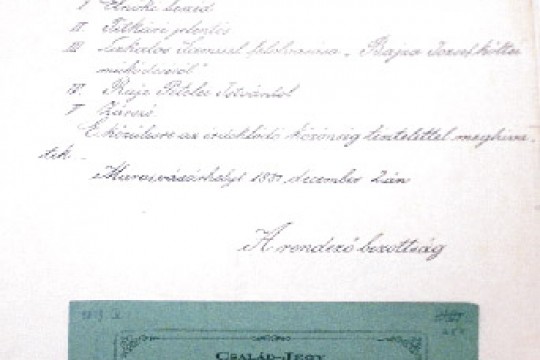 I Elnöki beszéd
II. Titkári jelentés
III Szakolos Sámuel felolvasása „Bajza József költői
működéséről"
IV. Rajz Petelei Istvántól
V Zárszó
E közülésre az érdeklődő közönség tisztelettel meghiva-
tik.
Marosvásárhelyt december 2án
A rendező bizottság
CSALÁD-JEGY